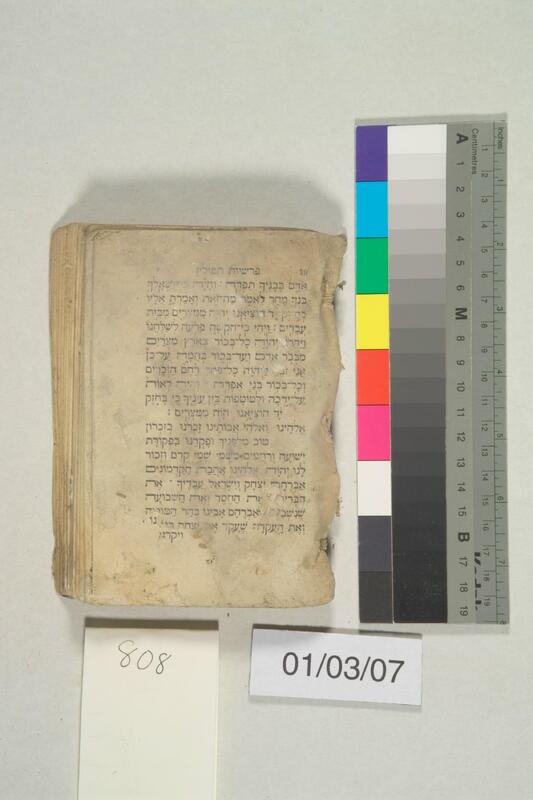 פרשיות תפילין
אדם בבניך תפדה: והיה כי ישאלך
בנך מחר לאמר מה זאת ואמרת אליו
הוציאנו יהוה ממצרים מבית
עבדים: ויהי כי הקשה פרעה לשלחנו
ויהרג יהוה כל־בכור בארץ מצרים
מבכר אדם ועד־בכור בהמה על־כן
אני זבח ליהוה כל־פטר רחם הזכרים
וכל־בכור בני אפדה: והיה לאות
על־ידכה ולטוטפות בין עיניך כי בחזק
יד הוציאנו יהוה ממצרים:
אלהינו ואלהי אבותינו זכרנו בזכרון
טוב מלפניך ופקדנו בפקודת
ישועה ורחמים משמי שמי קדם וזכור
לנו יהוה אלהינו אהבת הקדמונים
אברהם יצחק וישראל עבדיך את
הברית את החסד ואת השבועה
שנשבעת לאברהם אבינו בהר המוריה
ואת העקדה שעקד את יצחק בנו
ויקרנו
808
01/03/07
Inches
Centimetres
1 2 3 4 5 6 7 8
A 1 2 3 4 5 6 M 8 9 10 11 12 13 14 15 B 17 18 19